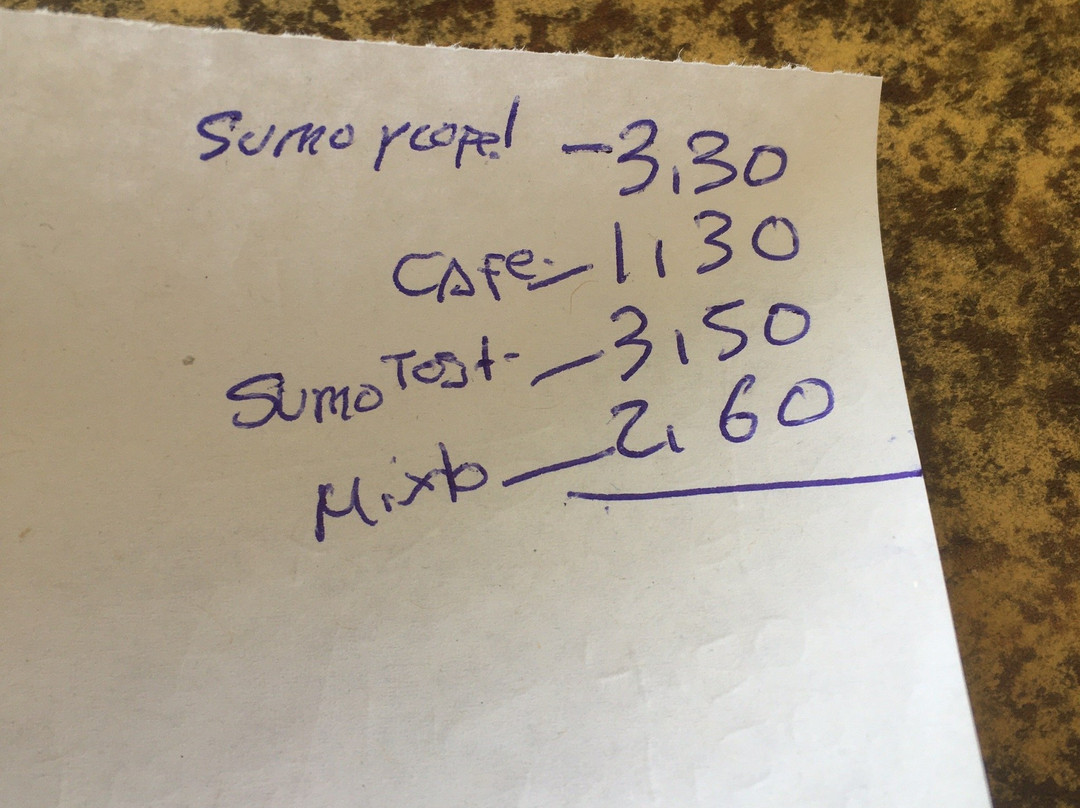 Sumo - 3,30
Cafe - 1,30
Sumo Tost - 3,50
Mixto - 2,60